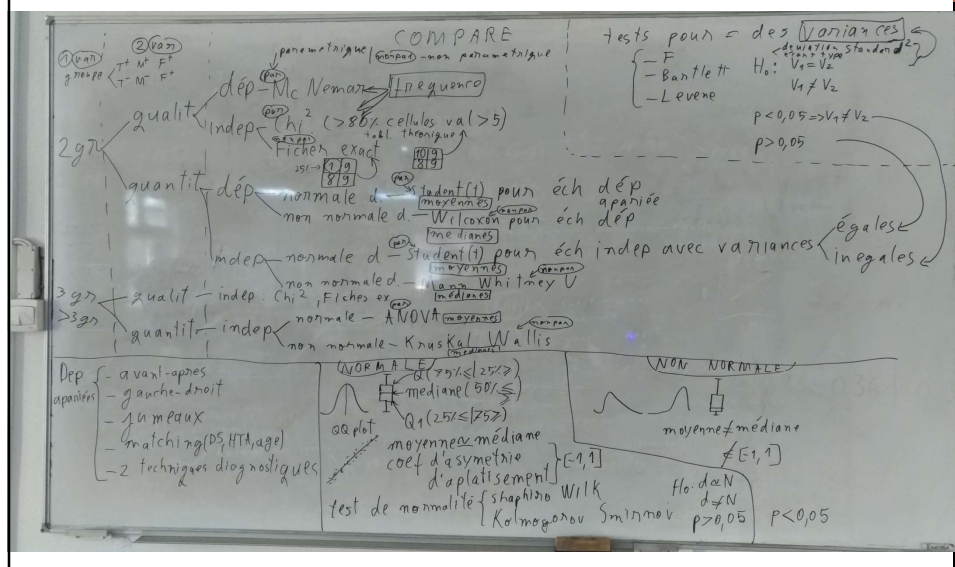 COMPARE
① var
groupe
② var
T+ M+ F+
T- M- F+
parametrique / nonpar - non parametrique
2gr
qualit
dép - Mc Nemar
par
frequence
indep
par
Chi² (>80% cellules val >5)
tabl. theorique
nonpar
Ficher exact
25%
1 9
8 9
10 9
8 9
quantit
dép
normale d. - student (t) pour éch dép
par
moyennes
apariée
non normale d. - Wilcoxon pour éch dép
nonpar
medianes
indep
normale d - student (t) pour éch indep avec variances
par
moyennes
égales
inegales
non normale d. - Mann Whitney U
nonpar
médianes
3gr
>3gr
qualit - indep: Chi², Ficher ex
quantit - indep
normale - ANOVA moyennes
par
non normale - Kruskal Wallis
nonpar
medianes
tests pour = des variances
deviation standard²
ecart type
- F
- Bartlett
- Levene
H₀: V₁ = V₂
V₁ ≠ V₂
p < 0,05 => V₁ ≠ V₂
p > 0,05
Dep
apariées
- avant-apres
- gauche-droit
- jumeaux
- matching (DS, HTA, age)
- 2 techniques diagnostiques
NORMALE
Q₁ (25% ≤ | 75% ≥)
mediane (50% ≤ ≥)
QQ plot
moyenne ~ médiane
coef d'asymetrie
d'aplatisement
[-1, 1]
test de normalité
shaphiro Wilk
Kolmogorov Smirnov
NON NORMALE
moyenne ≠ médiane
∉ [-1, 1]
H₀: d ~ N
d ≠ N
p > 0,05
p < 0,05